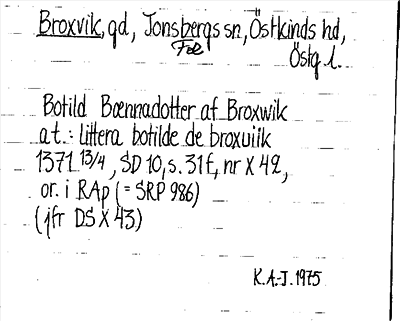 Broxvik, gd, Jonsbergs sn, Östkinds hd,
Östg. l.
Botild Bœnnadotter af Broxwik
a t.: littera botilde de broxuiik
1371 13/4, SD 10, s. 31 f, nr X 42,
or. i RAp (= SRP 986)
(jfr DS X 43)
K.A.-J. 1975